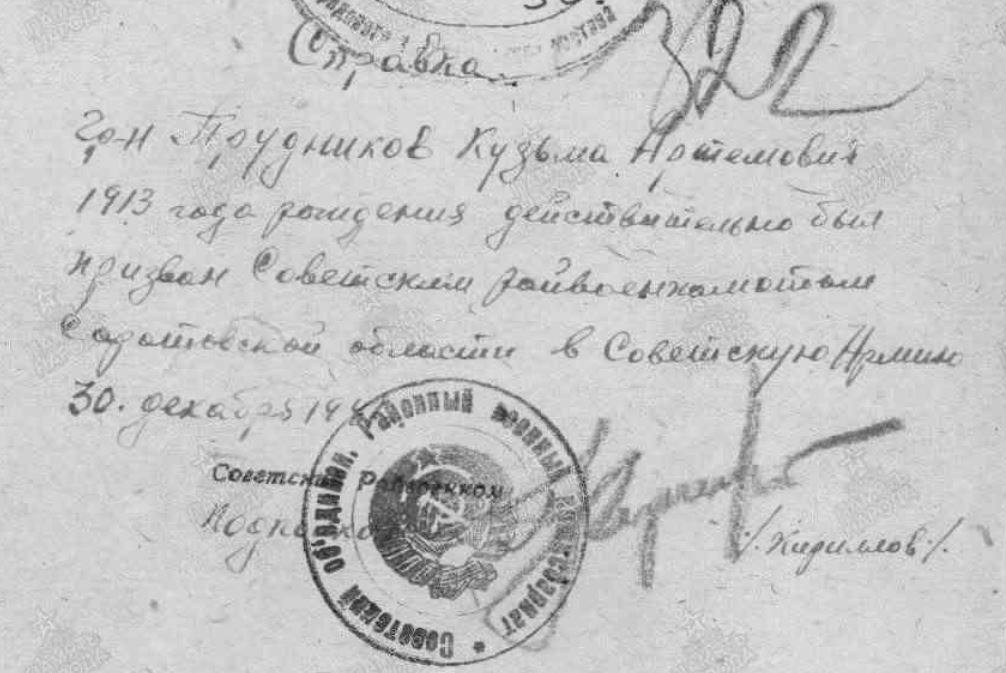 Справка
322
Гр-н Трудников Кузьма Артемович
1913 года рождения действительно был
призван Советским райвоенкоматом
Саратовской области в Советскую Армию
30. декабря 19
Советский Райвоенком
Подпол
/. Кириллов /.
Советский объединен. Районный военный комиссариат